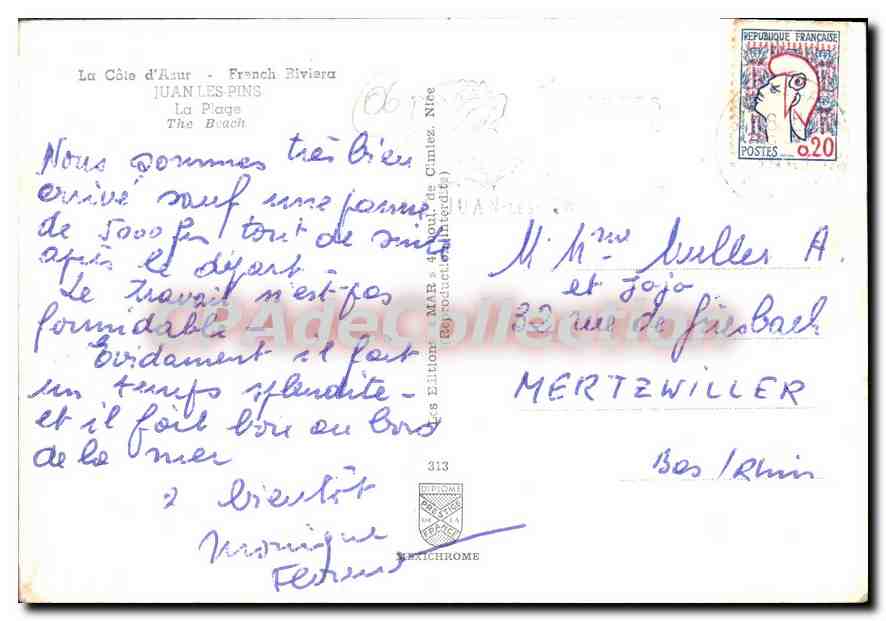 La Côte d'Azur - French Riviera
JUAN LES-PINS
La Plage
The Beach
Nous sommes très bien
arrivé sauf une panne
de 5000 frs tout de suite
après le départ -
Le travail n'est pas
formidable -
Evidament il fait
un temps splendite -
et il fait bon au bord
de la mer
à bientôt
Monique
Les Editions MAR, 4, boul. de Cimiez, Nice
(Reproduction Interdite)
313
DIPLOME
PRESTIGE
DE LA
FRANCE
MEXICHROME
REPUBLIQUE FRANÇAISE
POSTES 0,20
06
JUAN-LES-
M. Mme Muller A.
et Jojo
32 rue de Griesbach
MERTZWILLER
Bas/Rhin
CPAdeCollection